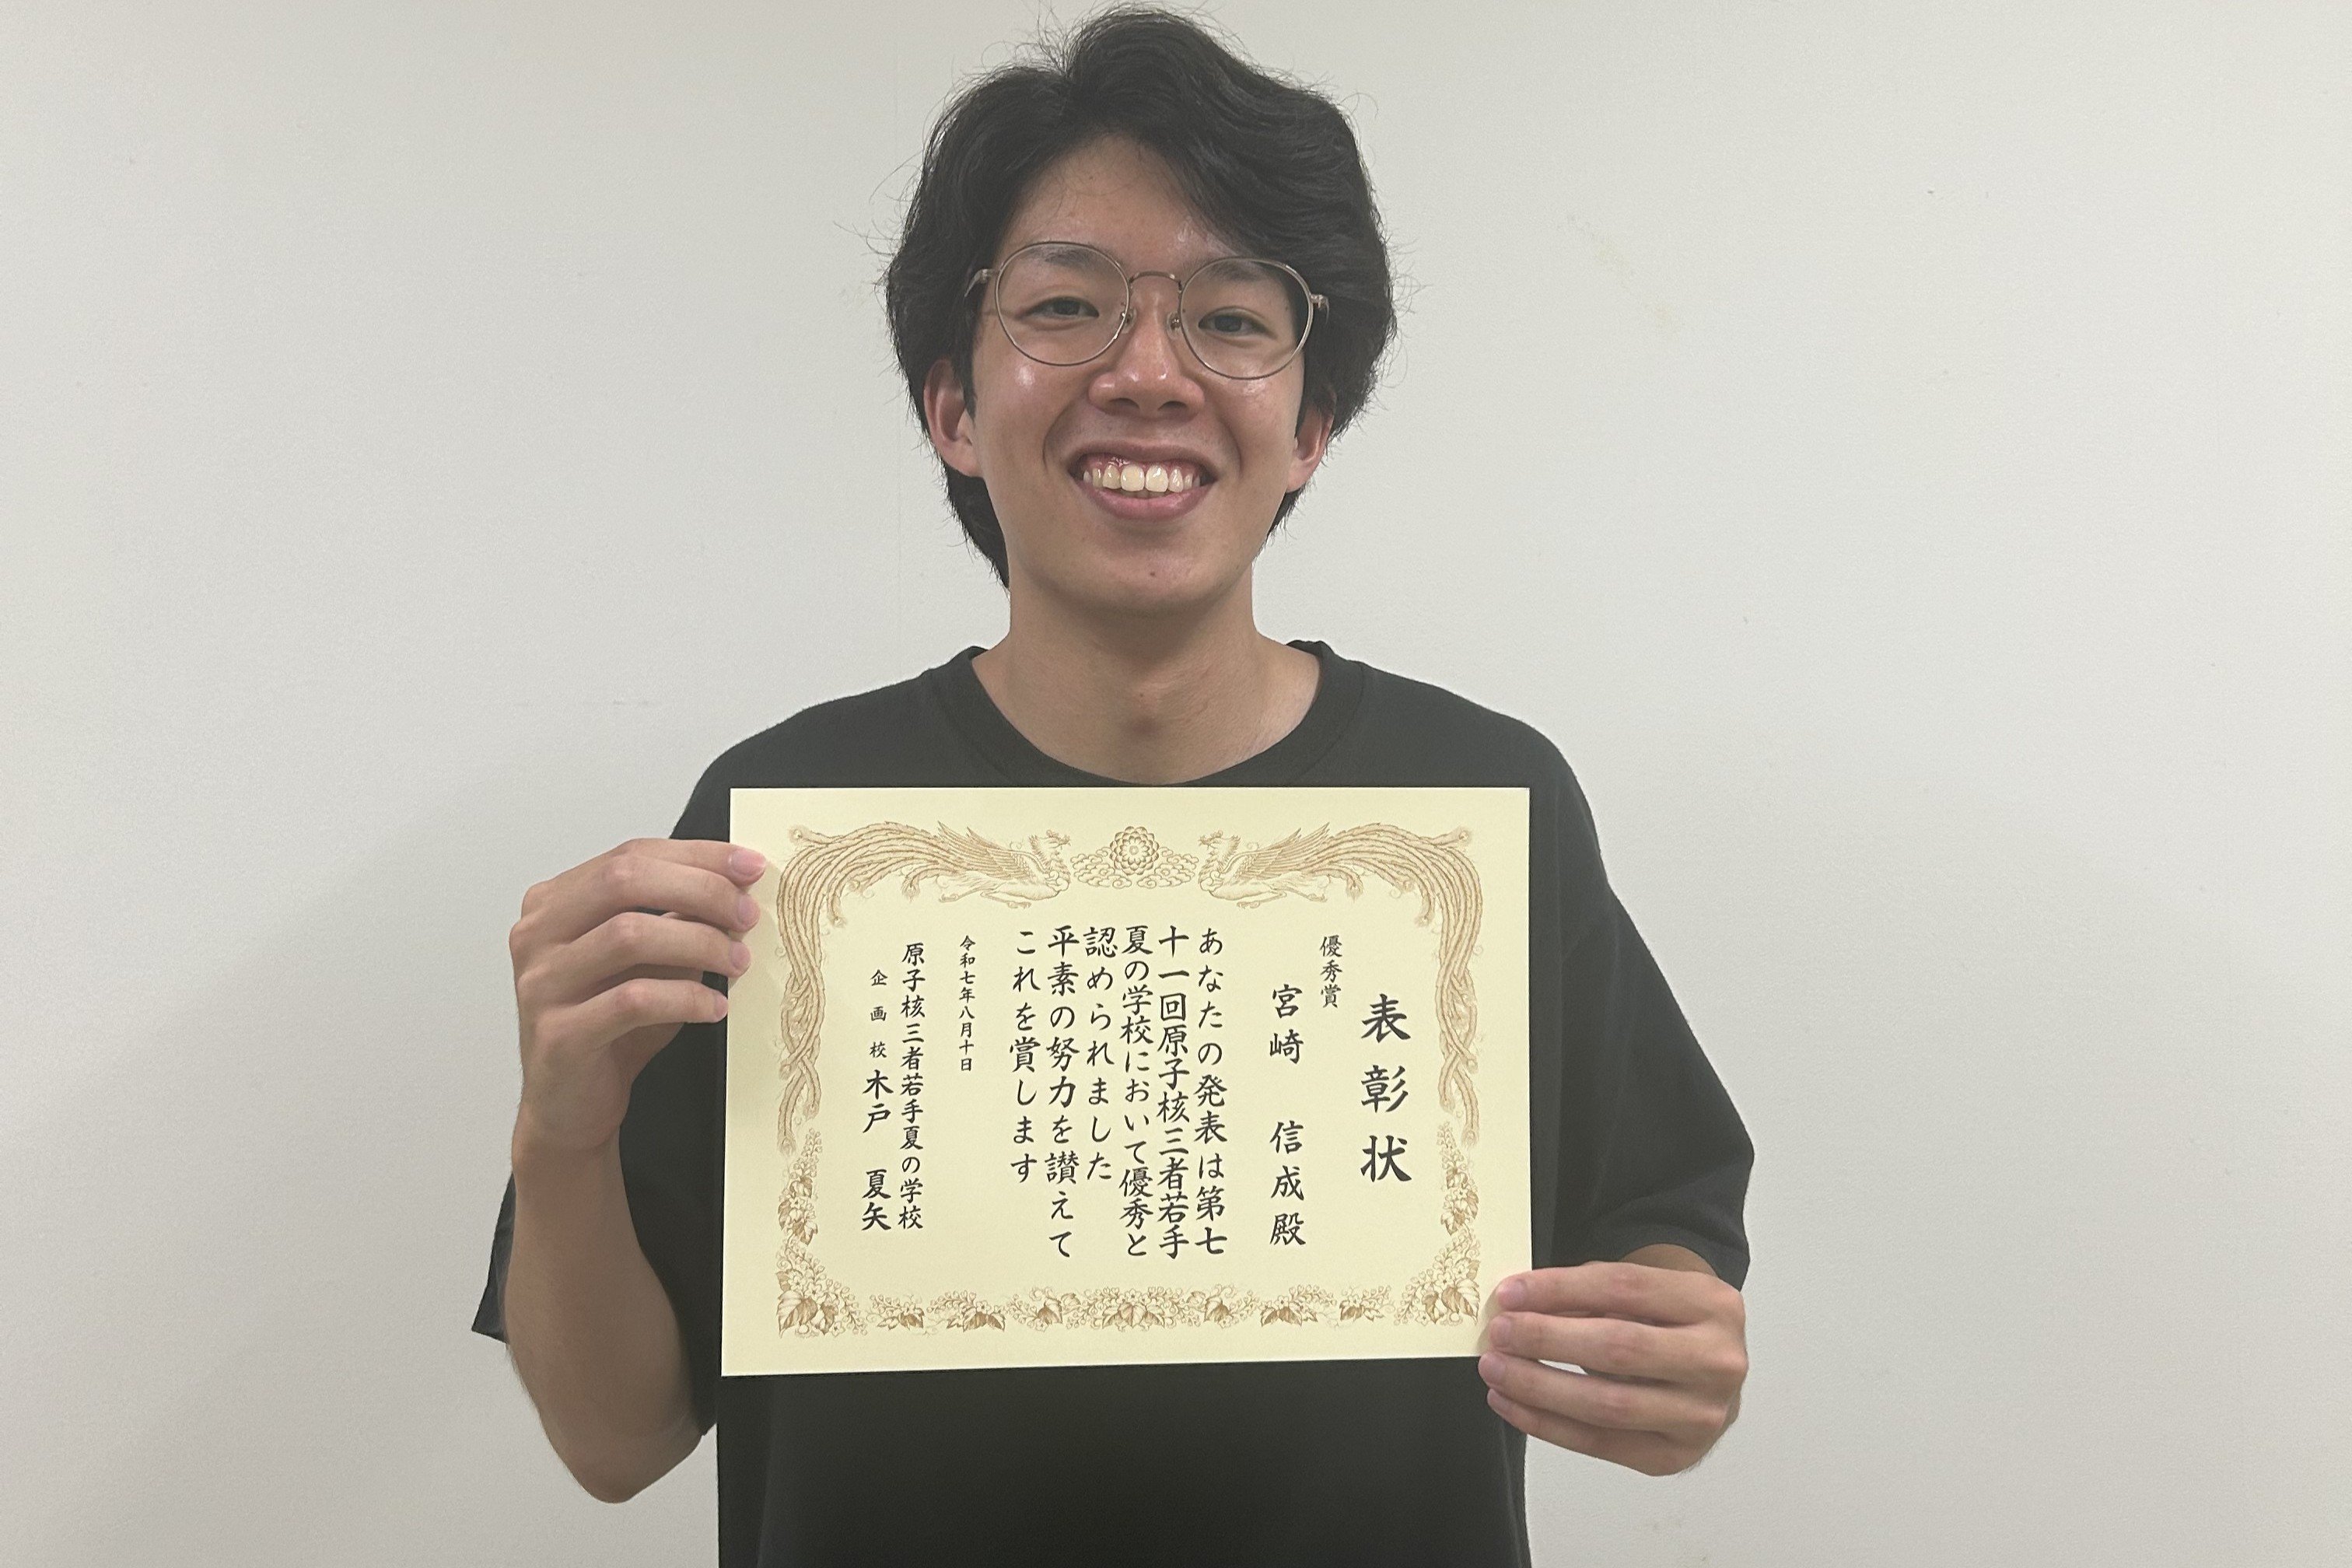 表彰状
優秀賞
宮崎 信成殿
あなたの発表は第七
十一回原子核三者若手
夏の学校において優秀と
認められました
平素の努力を讃えて
これを賞します
令和七年八月十日
原子核三者若手夏の学校
企画校 木戸 夏矢